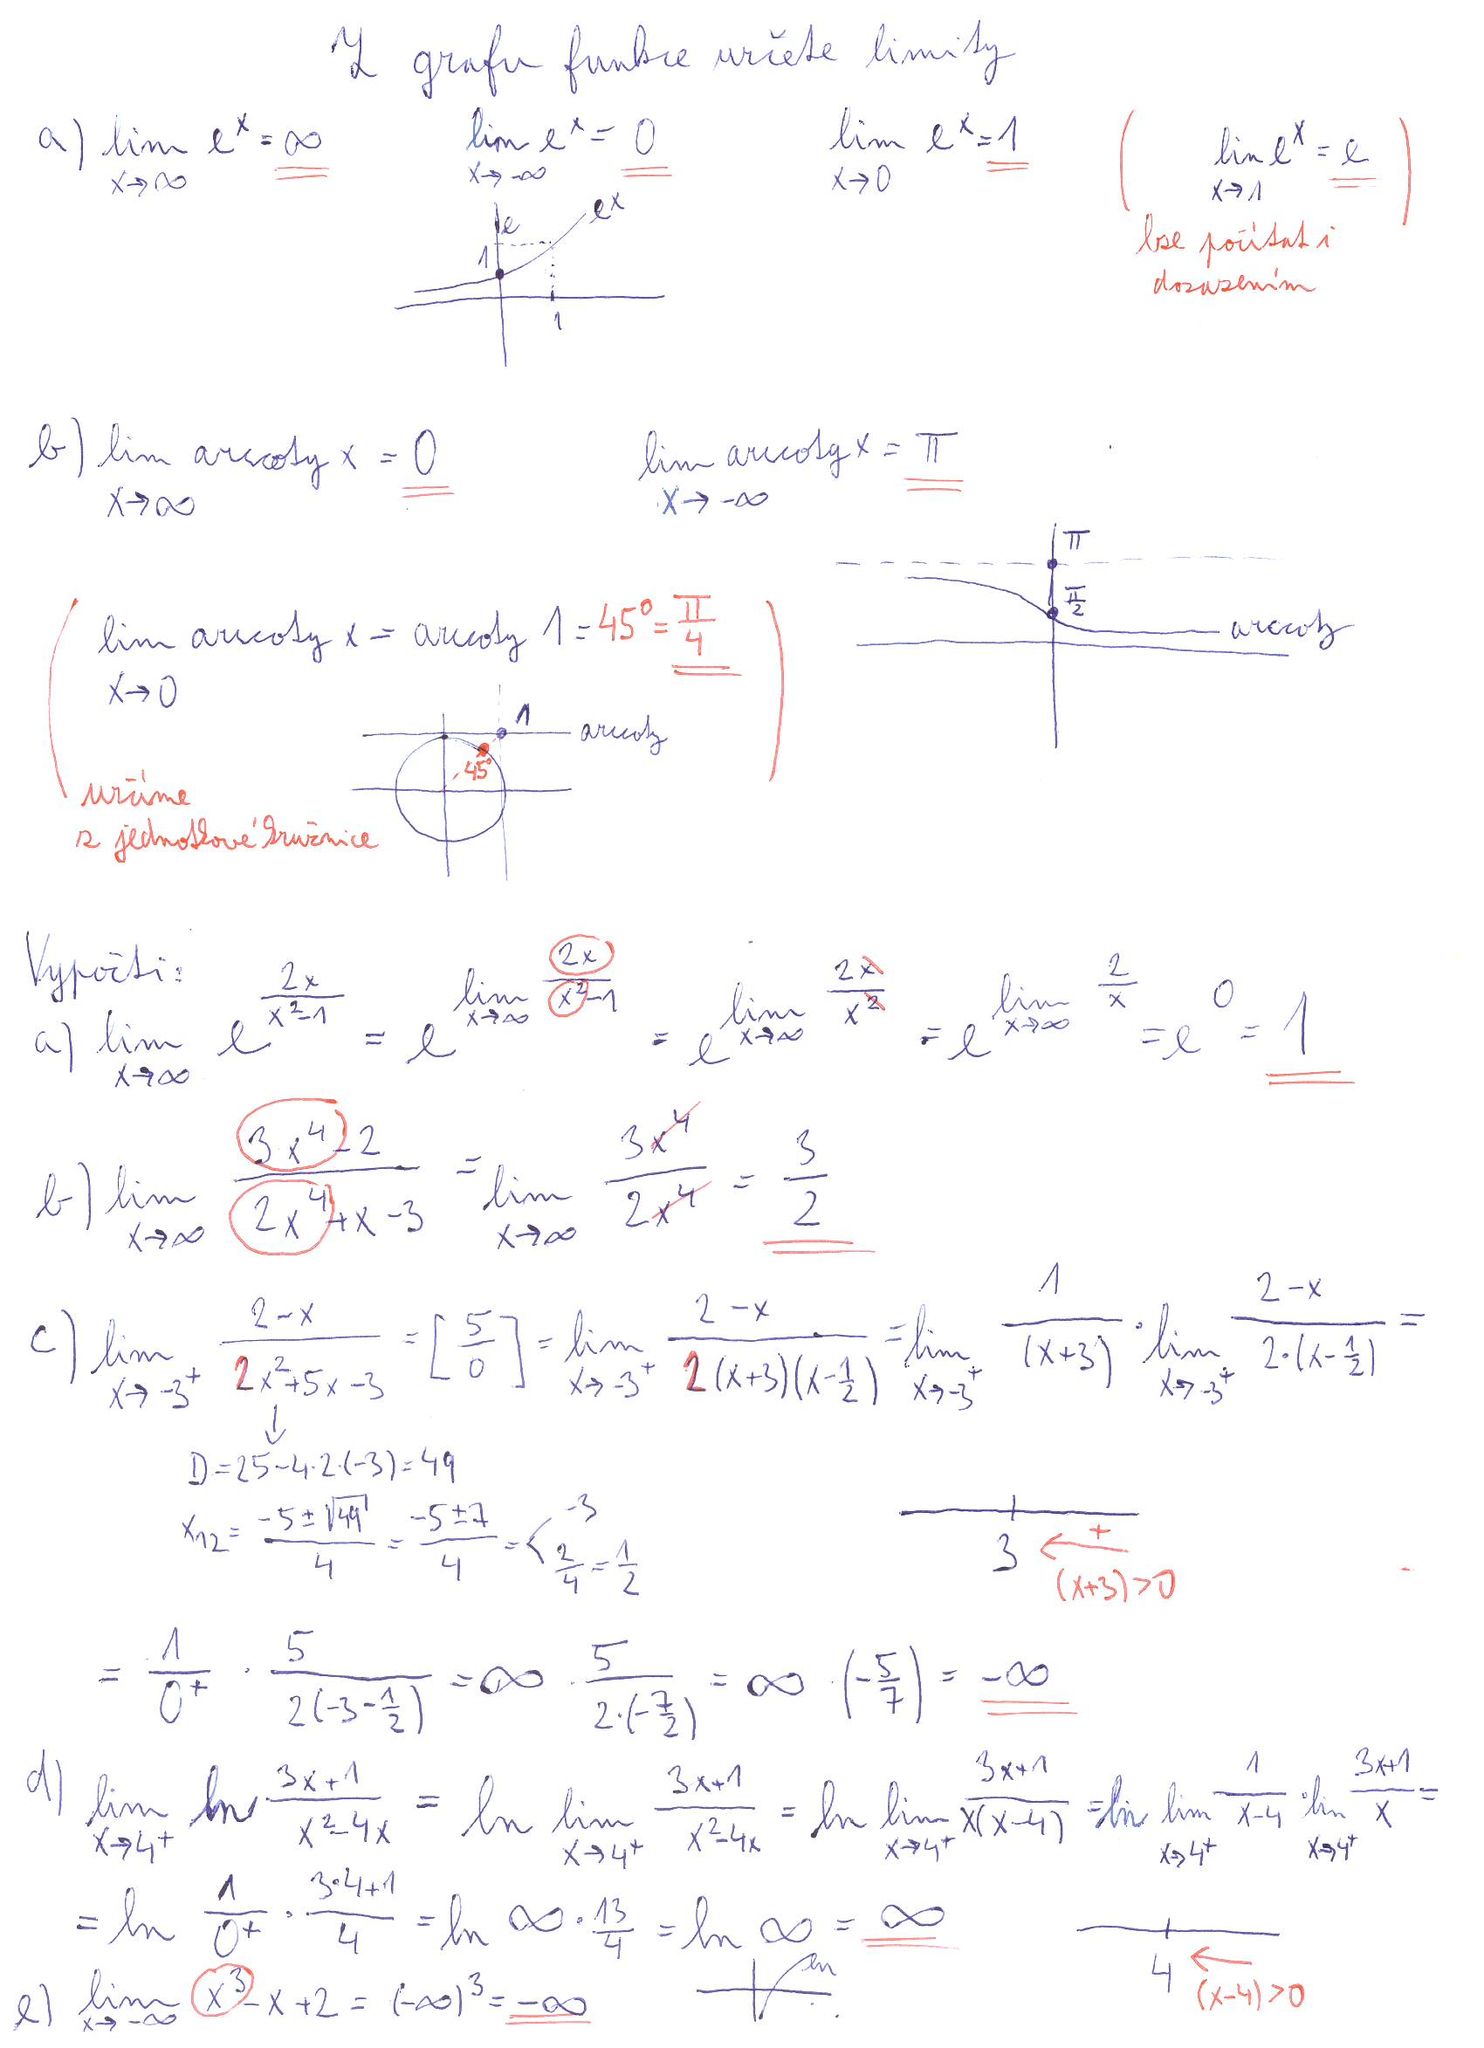 Z grafu funkce určete limity
a) lim x→∞ e^x = ∞   lim x→-∞ e^x = 0   lim x→0 e^x = 1   ( lim x→1 e^x = e )
lze počítat i
dosazením
e   e^x
1
1
b) lim x→∞ arccotg x = 0   lim x→-∞ arccotg x = π
π
π/2
arccotg
( lim x→0 arccotg x = arccotg 1 = 45° = π/4 )
1   arccotg
45°
určíme
z jednotkové kružnice
Vypočti:
a) lim x→∞ e^(2x/(x²-1)) = e^(lim x→∞ 2x/(x²-1)) = e^(lim x→∞ 2x/x²) = e^(lim x→∞ 2/x) = e^0 = 1
b) lim x→∞ (3x⁴-2)/(2x⁴+x-3) = lim x→∞ 3x⁴/2x⁴ = 3/2
c) lim x→-3⁺ (2-x)/(2x²+5x-3) = [5/0] = lim x→-3⁺ (2-x)/(2(x+3)(x-1/2)) = lim x→-3⁺ 1/(x+3) · lim x→-3⁺ (2-x)/(2·(x-1/2)) =
↓
D = 25-4·2·(-3) = 49
x₁₂ = (-5±√49)/4 = (-5±7)/4 = < -3   2/4 = 1/2
3   ← +
(x+3)>0
= 1/0⁺ · 5/(2(-3-1/2)) = ∞ · 5/(2·(-7/2)) = ∞ · (-5/7) = -∞
d) lim x→4⁺ ln (3x+1)/(x²-4x) = ln lim x→4⁺ (3x+1)/(x²-4x) = ln lim x→4⁺ (3x+1)/(x(x-4)) = ln lim x→4⁺ 1/(x-4) · lim x→4⁺ (3x+1)/x =
= ln 1/0⁺ · (3·4+1)/4 = ln ∞ · 13/4 = ln ∞ = ∞
ln
4   ←
(x-4)>0
e) lim x→-∞ x³-x+2 = (-∞)³ = -∞